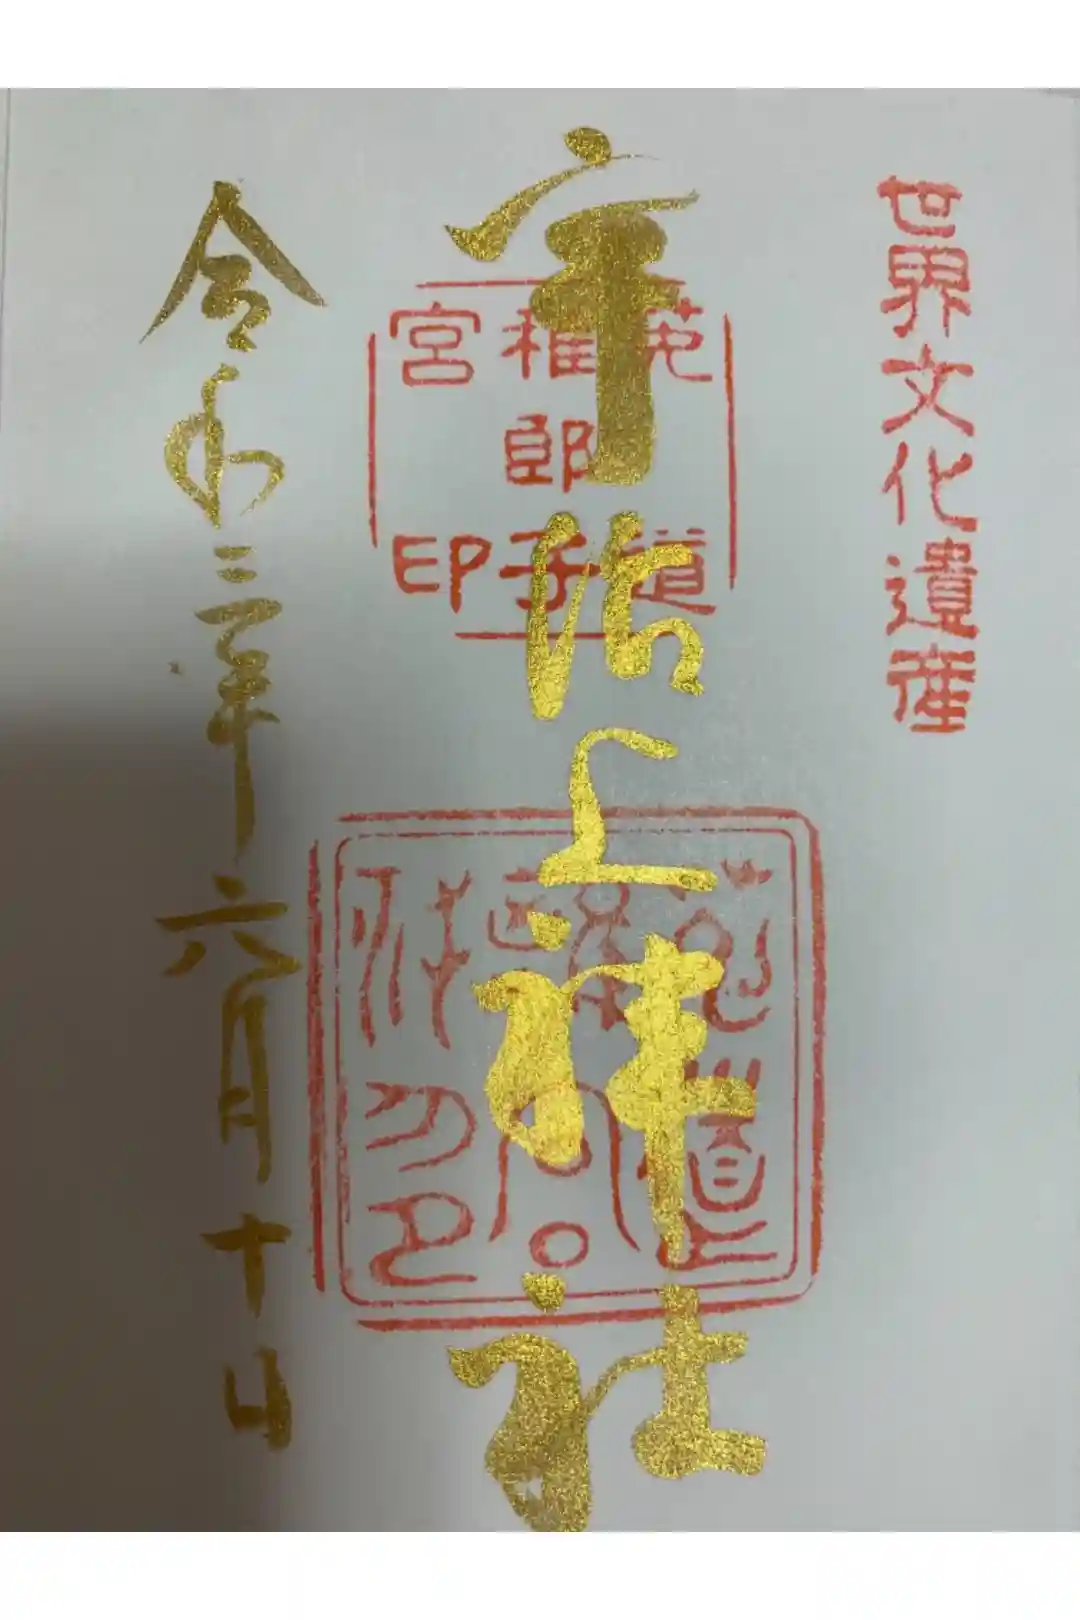 世界文化遺産
宇治上神社
菟道
稚郎子
宮印
令和三年六月十日